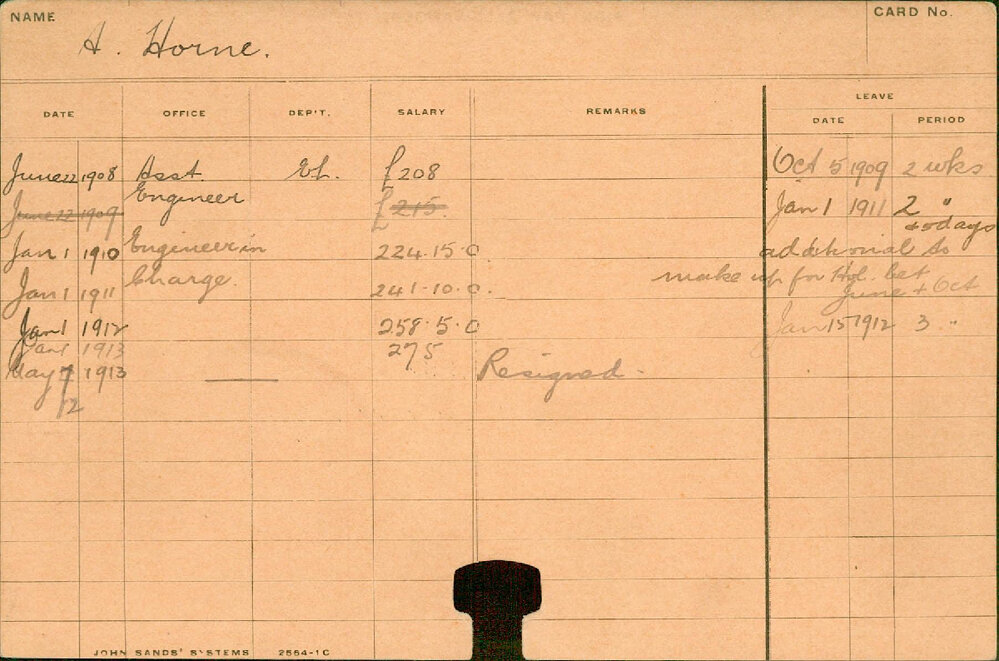 NAME
CARD No.
A. Horne.
DATE OFFICE DEP'T. SALARY REMARKS LEAVE
DATE PERIOD
June 22 1908 Asst. El. £208 Oct 5 1909 2 wks
June 22 1909 Engineer £215. Jan 1 1911 2 "
+ days
Jan 1 1910 Engineer in 224.15.0 additional to
Jan 1 1911 Charge. 241.10.0. make up for Hol. bet
June + Oct
Jan 1 1912 258.5.0 Jan 15 1912 3 "
Jan 1 1913 275
May 7 1913 — Resigned.
12
JOHN SANDS' SYSTEMS 2564-1C